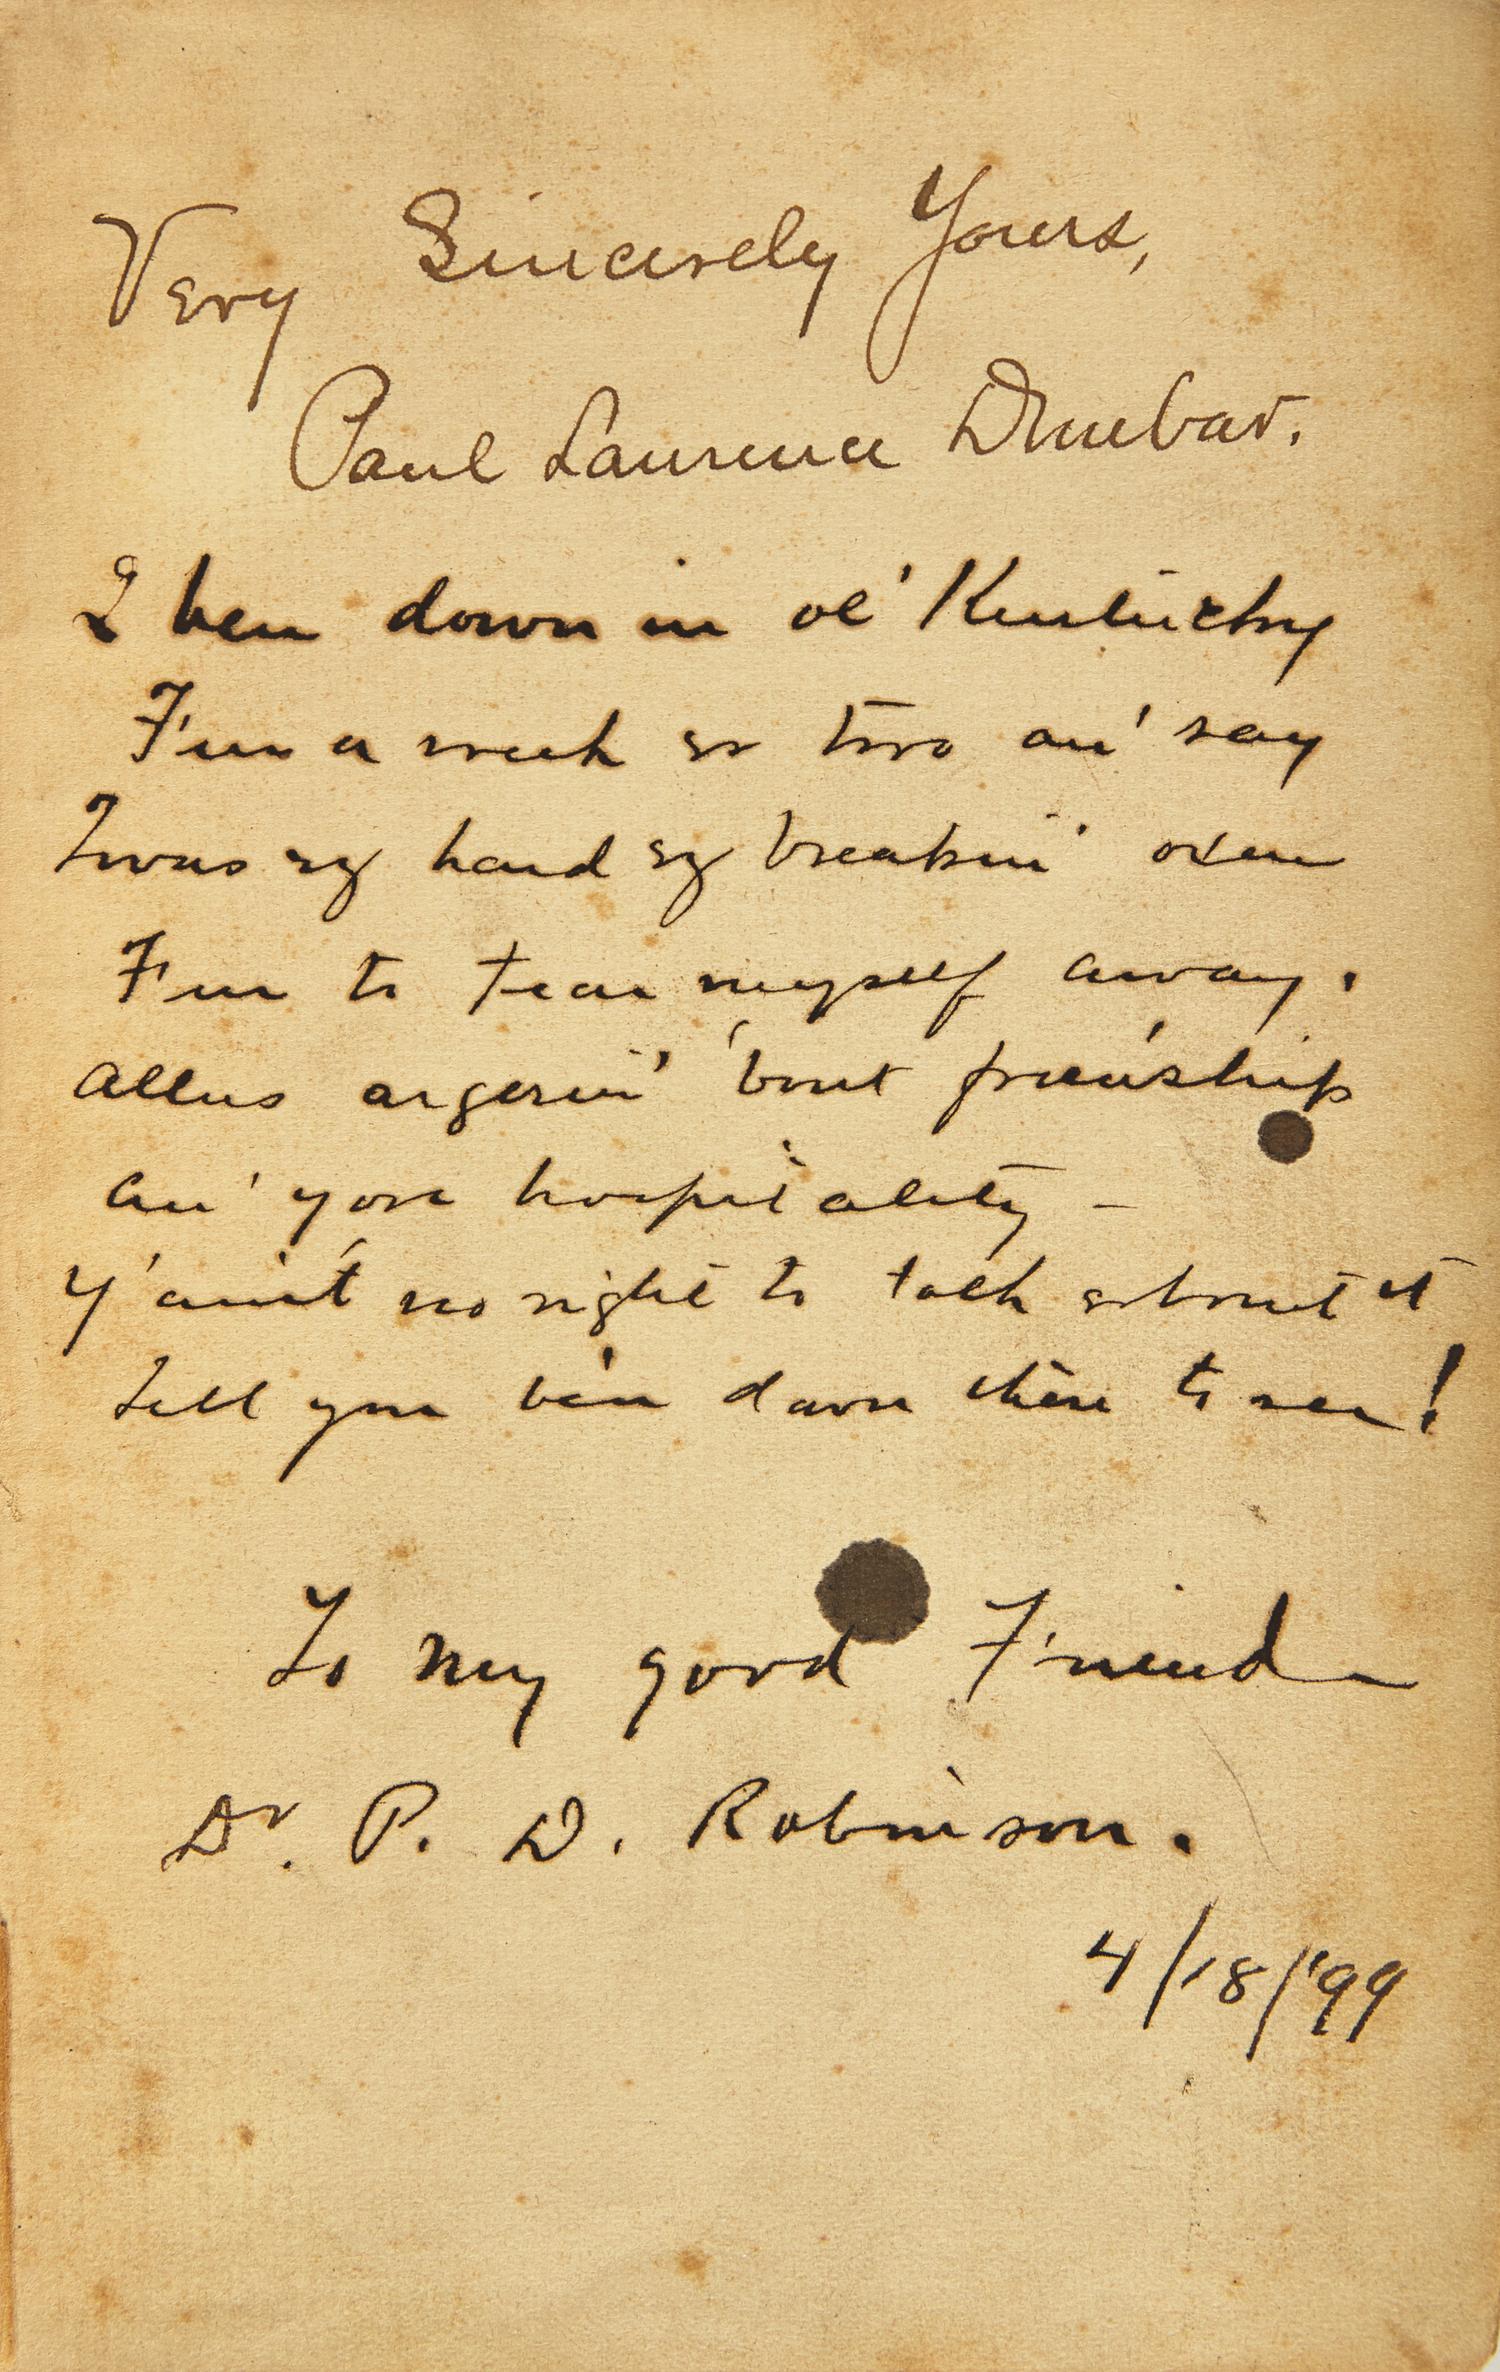 Very Sincerely Yours,
Paul Laurence Dunbar.
I ben down in ol' Kentucky
Fur a week er two an' say
Twas ez hard ez breakin' oxen
Fur to tear myself away.
Allus argerin' 'bout frien'ship
An' yore hospitality –
Y' ain't no right to talk erbout it
Tell you be'n down there to see!
To my good Friend
Dr. P. D. Robinson.
4/18/'99